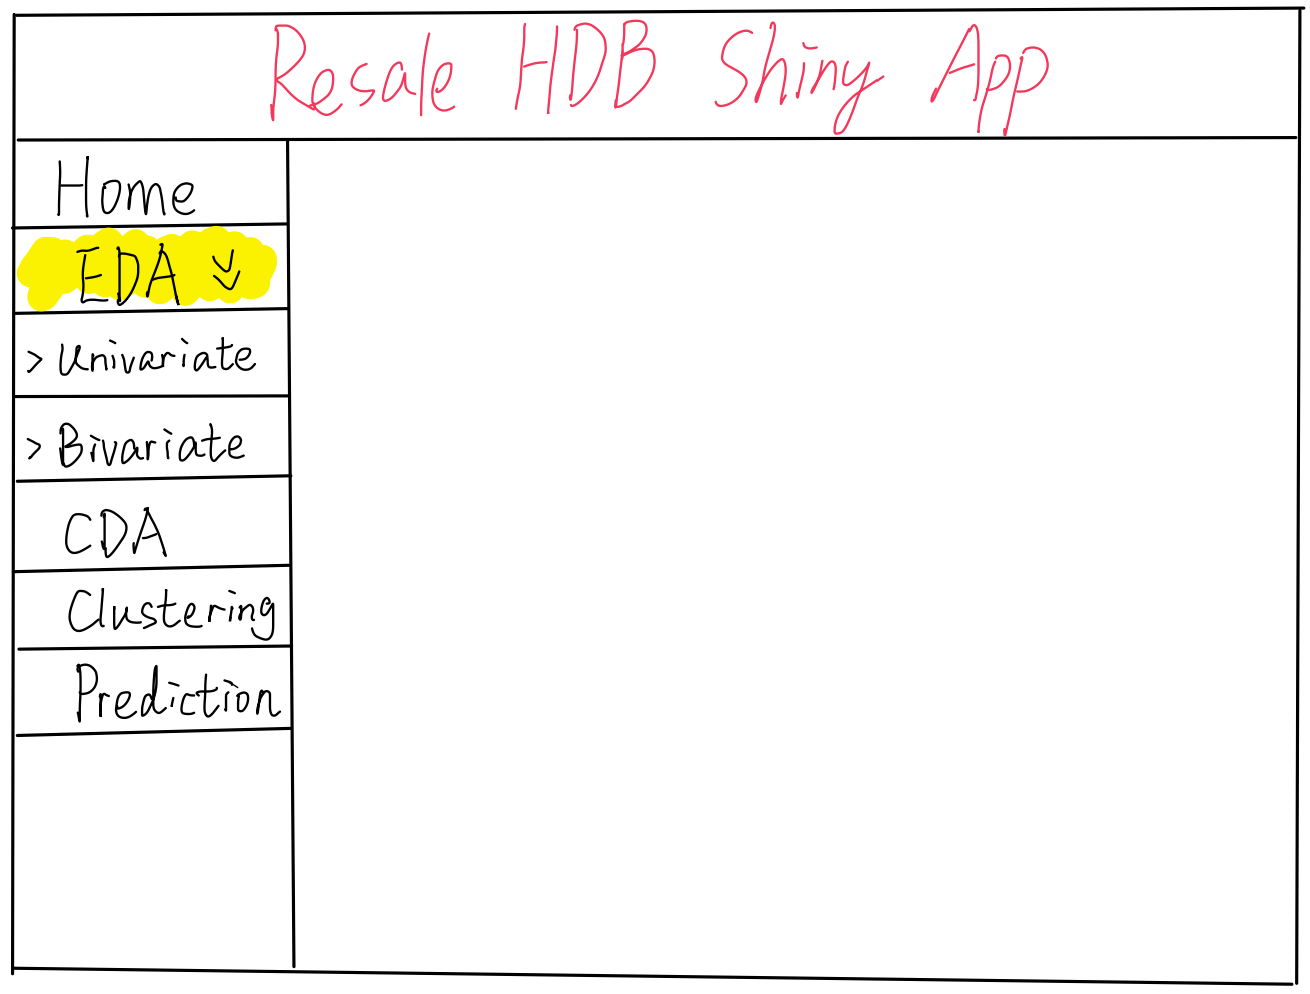 Resale HDB Shiny App
Home
EDA
> Univariate
> Bivariate
CDA
Clustering
Prediction